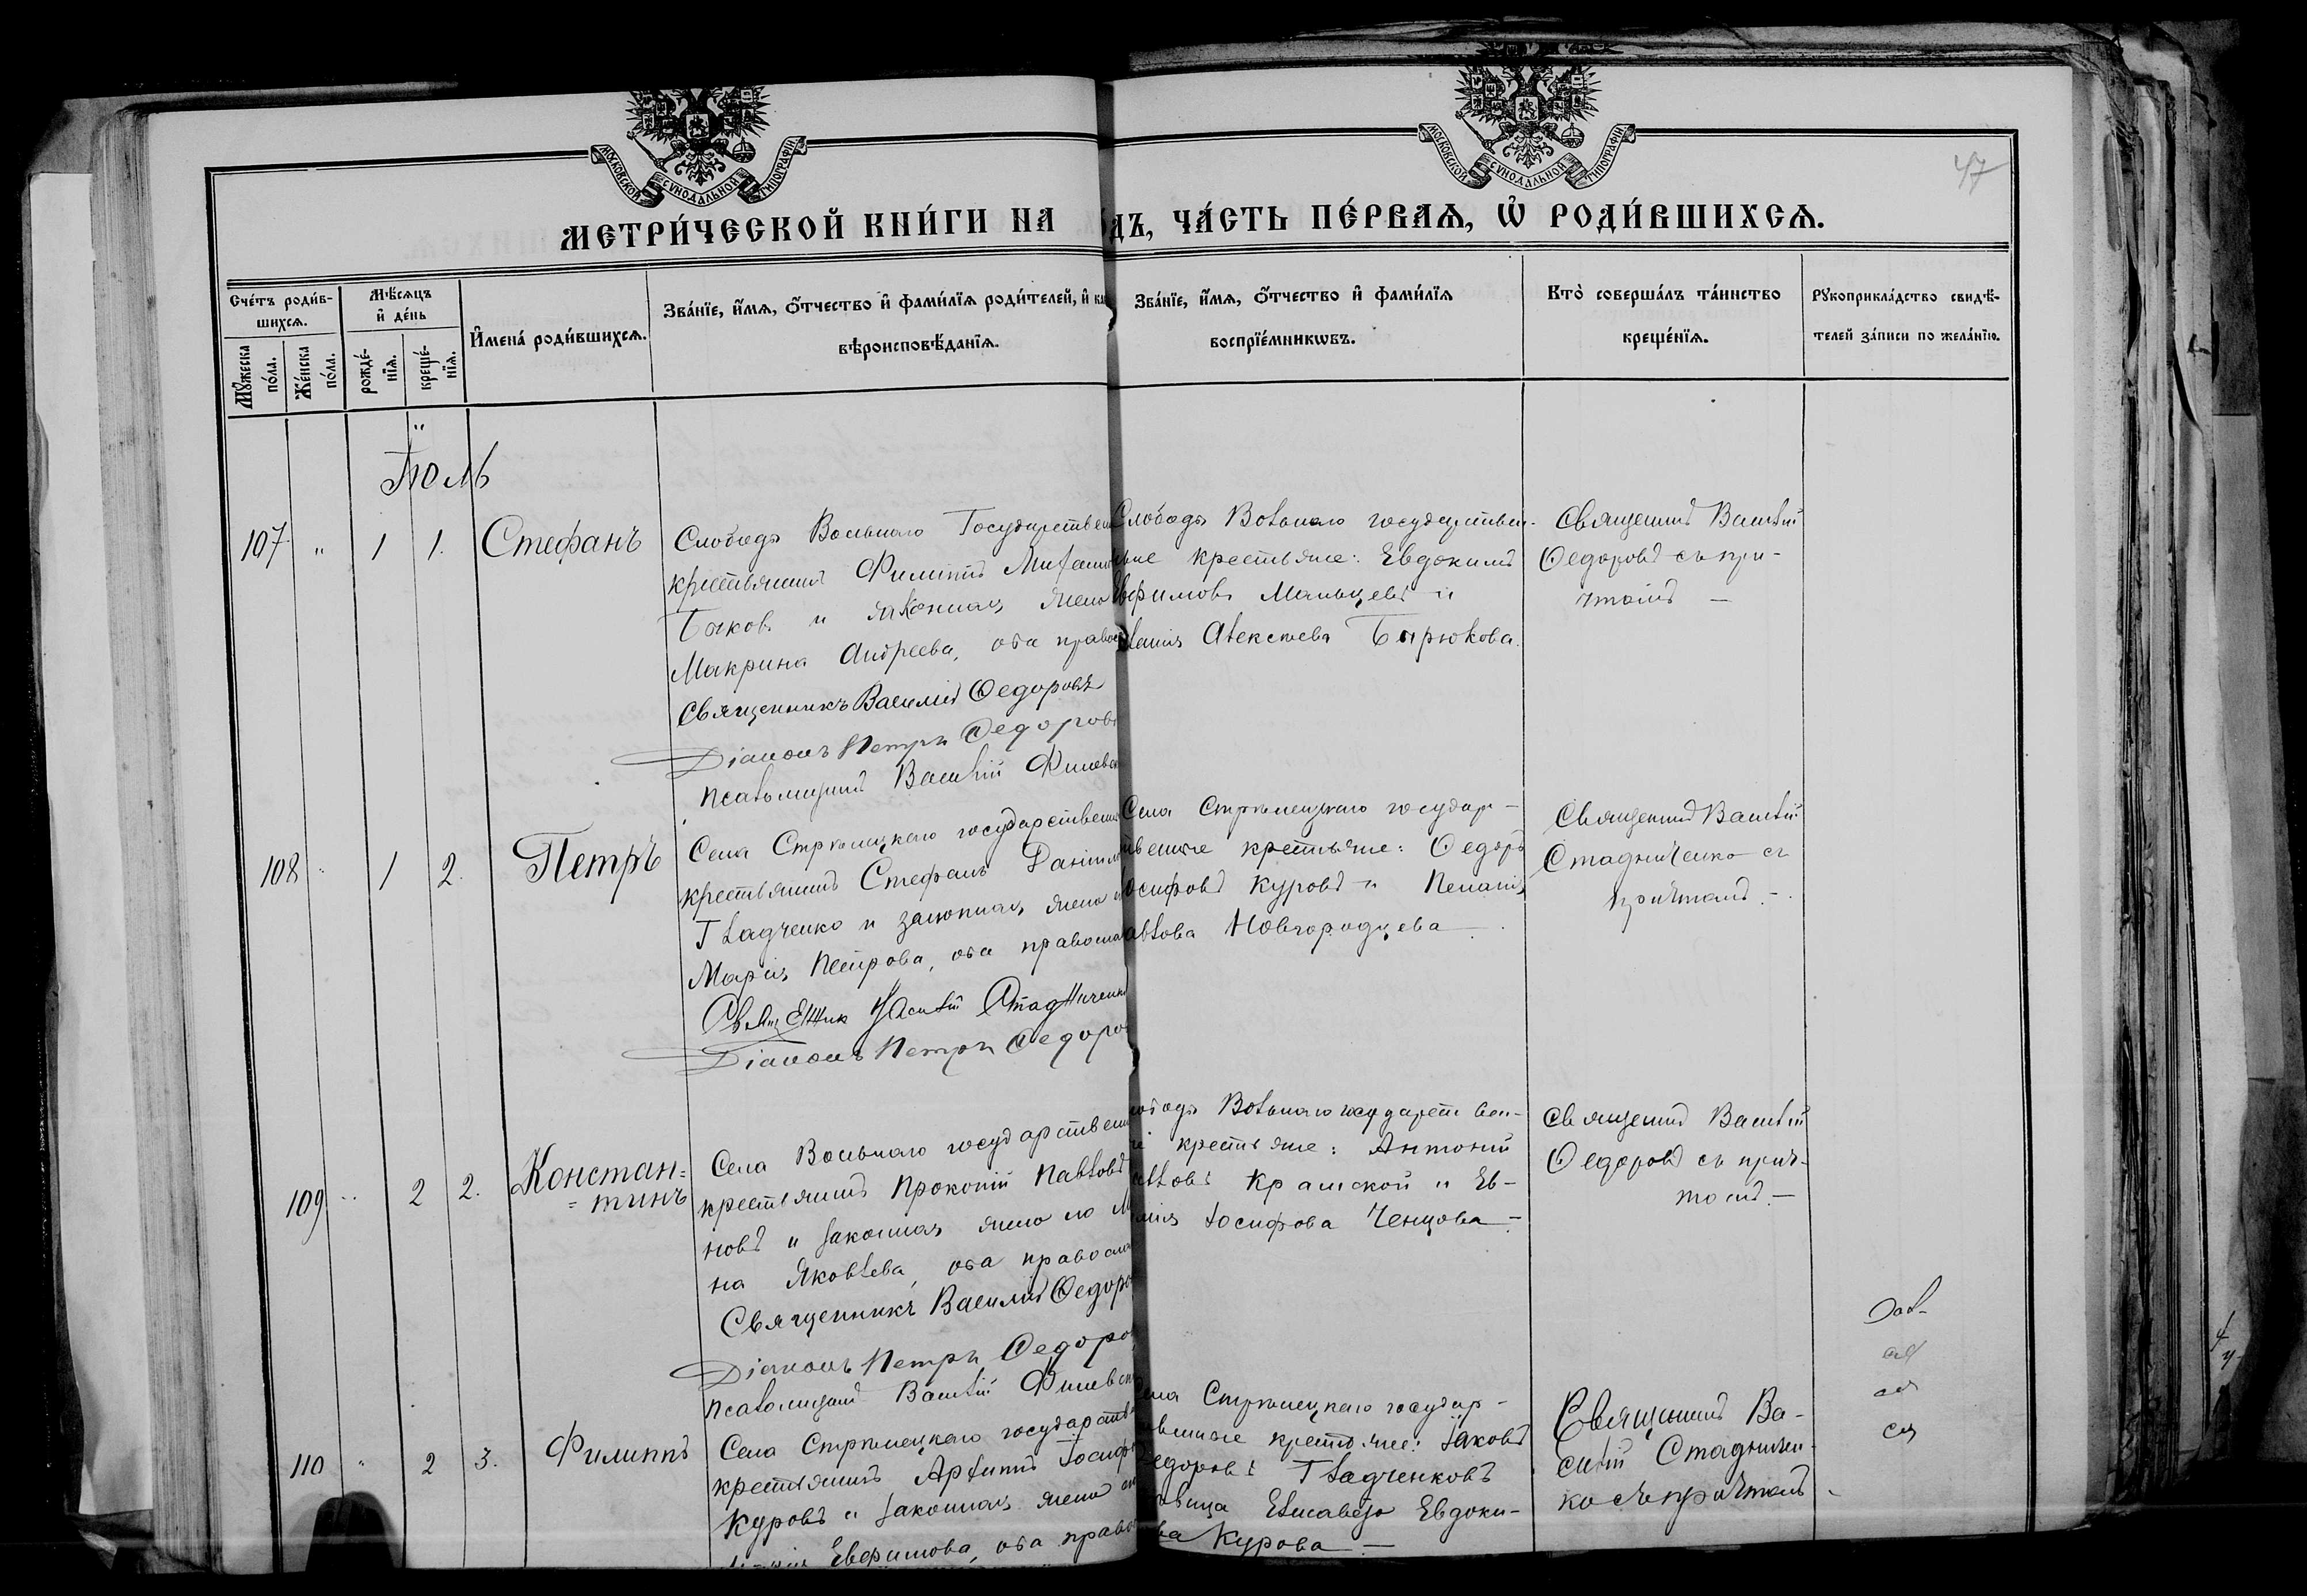 МОСКОВСКОЙ СѴНОДАЛЬНОЙ ТИПОГРАФІИ
МОСКОВСКОЙ СѴНОДАЛЬНОЙ ТИПОГРАФІИ
47
МЕТРИ́ЧЕСКОЙ КНИ́ГИ НА
ОДЪ, ЧА́СТЬ ПЕ́РВАѦ, Ѡ҆ РОДИ́ВШИХСѦ.
Сче́тъ роди́в-
шихсѧ.
Мꙋ́жеска по́ла.
Же́нска по́ла.
Мѣ́сѧцъ
и҆ де́нь
рожде́-
нїѧ.
креще́-
нїѧ.
И҆мена̀ роди́вшихсѧ.
Зва́нїе, и҆́мѧ, ѻ҆́тчество и҆ фами́лїѧ роди́телей, и҆
вѣроисповѣ́данїѧ.
Зва́нїе, и҆́мѧ, ѻ҆́тчество и҆ фами́лїѧ
воспрїе́мникѡвъ.
Кто̀ соверша́лъ та́инство
креще́нїѧ.
Рꙋкоприкла́дство свидѣ́-
телей за́писи по жела́нїю.
Іюль
107 " 1 1. Стефанъ
Слободы Вольнаго Государствен
крестьянинъ Филиппъ
Быковъ и законная жена
Макрина Андреева, оба правос
Священникъ Василій Ѳедоровъ
Діаконъ Петръ Ѳедоровъ
Псаломщикъ Василій
Слободы Вольнаго государствен-
ные крестьяне: Евдокимъ
Ефимовъ Мальцевъ и
Алексеева Бирюкова.
Священникъ Василій
Ѳедоровъ съ при-
чтомъ —
108 " 1 2. Петръ
Села Стрѣлецкаго государственн
крестьянинъ Стефанъ Данил
Гладченко и законная жена
Марія Петрова, оба правосла
Священник Василій Стадниченко
Діаконъ Петръ Ѳедоро
Села Стрѣлецкаго государ-
твенные крестьяне: Ѳедоръ
Осифовъ Куровъ и Пелагія
авлова Новгородцева —
Священникъ Василій
Стадниченко съ
причтомъ. —
109 " 2 2. Констан=
=тинъ
Села Вольнаго государственн
крестьянинъ Прокопій Павловъ
новъ и законная жена
на Яковлева, оба правосла
Священникъ Василій Ѳедоро
Діаконъ Петръ Ѳедоро
Псаломщикъ Василій
ободы Вольнаго государствен-
крестьяне: Антоній
авловъ и Ев-
Іосифова Ченцова —
Священникъ Василій
Ѳедоровъ съ прич-
томъ. —
110 " 2 3. Филиппъ
Села Стрѣлецкаго государств
крестьянинъ Архипъ Іосиф
Куровъ и законная жена
Евфимова, оба право
ела Стрѣлецкаго государ-
твенные крестьяне: Іаковъ
Ѳедоровъ Гладченковъ
вица Елисавета Евдоки-
ва Курова —
Священникъ Ва-
силій Стадничен-
ко съ причтомъ —